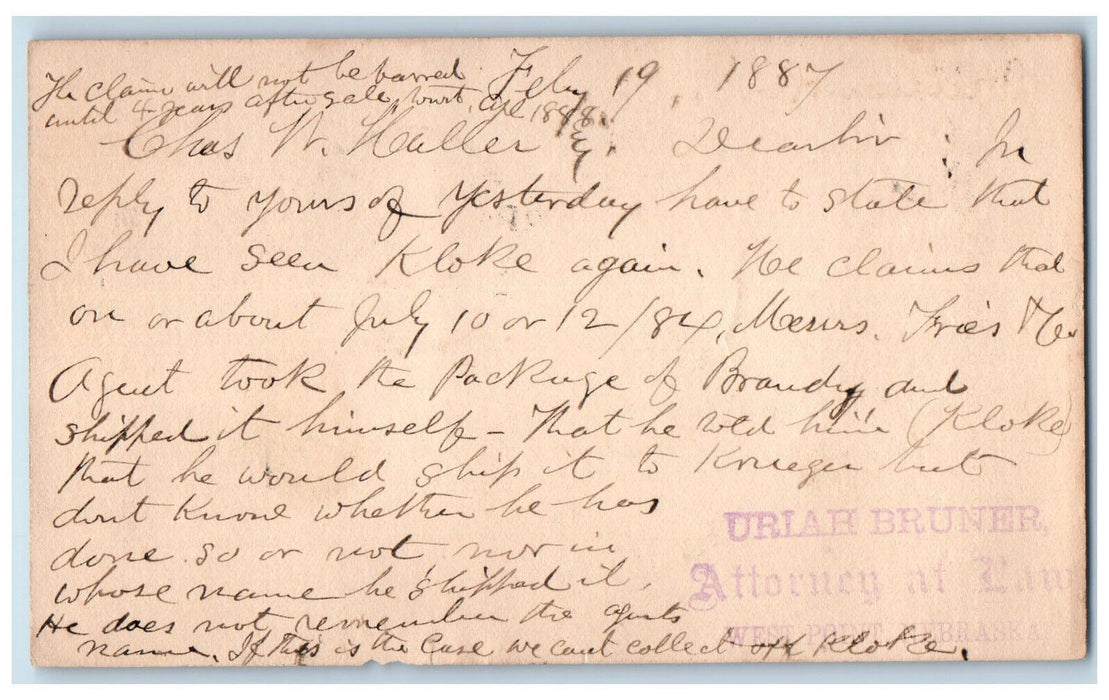 The claim will not be barred
until 4 years after sale,
Feby 19, 1887
Chas W. Haller Dear Sir: In
reply to yours of yesterday have to state that
I have seen Kloke again. He claims that
on or about July 10 or 12/84, Messrs. Fries
Agent took the Package of Brandy and
shipped it himself – That he told him (Kloke)
that he would ship it to Krueger but
dont know whether he has
done so or not nor in
whose name he shipped it.
He does not remember the agents
name. If this is the Case we cant collect off Kloke.
URIAH BRUNER,
Attorney at Law
WEST POINT, NEBRASKA